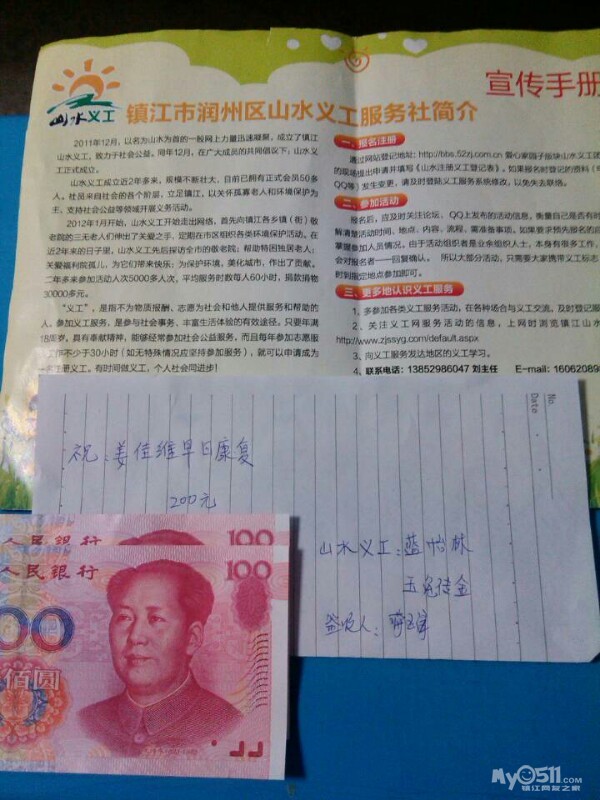 宣传手册
山水义工
镇江市润州区山水义工服务社简介
2011年12月，以名为山水为首的一般网上力量迅速凝聚，成立了镇江
山水义工，致力于社会公益。同年12月，在广大成员的共同倡议下，山水义
工正式成立。
山水义工成立近2年多来，规模不断壮大，目前已拥有正式会员50多
人。社员来自社会的各个阶层，立足镇江，以关怀孤寡老人和环境保护为
主，支持社会公益等领域开展义务活动。
2012年1月开始，山水义工开始走出网络，首先向镇江各乡镇（街）敬
老院的三无老人们伸出了关爱之手，定期在市区组织各类环境保护活动。在
近2年来的日子里，山水义工先后探访全市的敬老院；帮助特困独居老人；
关爱福利院孤儿，为它们带来快乐；为保护环境，美化城市，作出了贡献。
二年多来参加活动人次5000多人次，平均服务时数每人60小时，捐款捐物
30000多元。
“义工”，是指不为物质报酬，志愿为社会和他人提供服务和帮助的
人。参加义工服务，是参与社会事务、丰富生活体验的有效途径。只要年满
18周岁，具有奉献精神，能够经常参加社会公益服务，而且每年参加志愿服
工作不少于30小时（如无特殊情况应坚持参加服务），就可以申请成为
名注册义工。有时间做义工，个人社会同进步！
一、报名注册
通过网站登记地址：http://bbs.52zj.com.cn 爱心家园子版块山水义工团
的现场提出申请并填写《山水注册义工登记表》。如果报名时登记的资料（
QQ等）发生变更，请及时登陆义工服务系统修改，以免失去联络。
二、参加活动
报名后，应及时关注论坛、QQ上发布的活动信息，衡量自己是否有时
解清楚活动时间、地点、内容、流程、需准备事项。如果要求预先报名的应
掌握参加人员情况。由于活动组织者是业余组织人士，本身有很多工作，
会对报名者一一回复确认。 所以大部分活动，只需要大家携带义工标志
时到指定地点参加即可。
三、更多地认识义工服务
1、多参加各类义工服务活动，在各种场合与义工交流，及时登记服
2、关注义工网服务活动的信息，上网时浏览镇江山水
http://www.zjssyg.com/default.aspx
3、向义工服务发达地区的义工学习。
4、联系电话：13852986047 刘主任 E-mail: 160620898
No.
Date
祝：姜佳维早日康复
200元
山水义工：蓝怡林
签收人：
人民银行 100
人民银行 100
00
佰圆
My0511.com
镇江网友之家